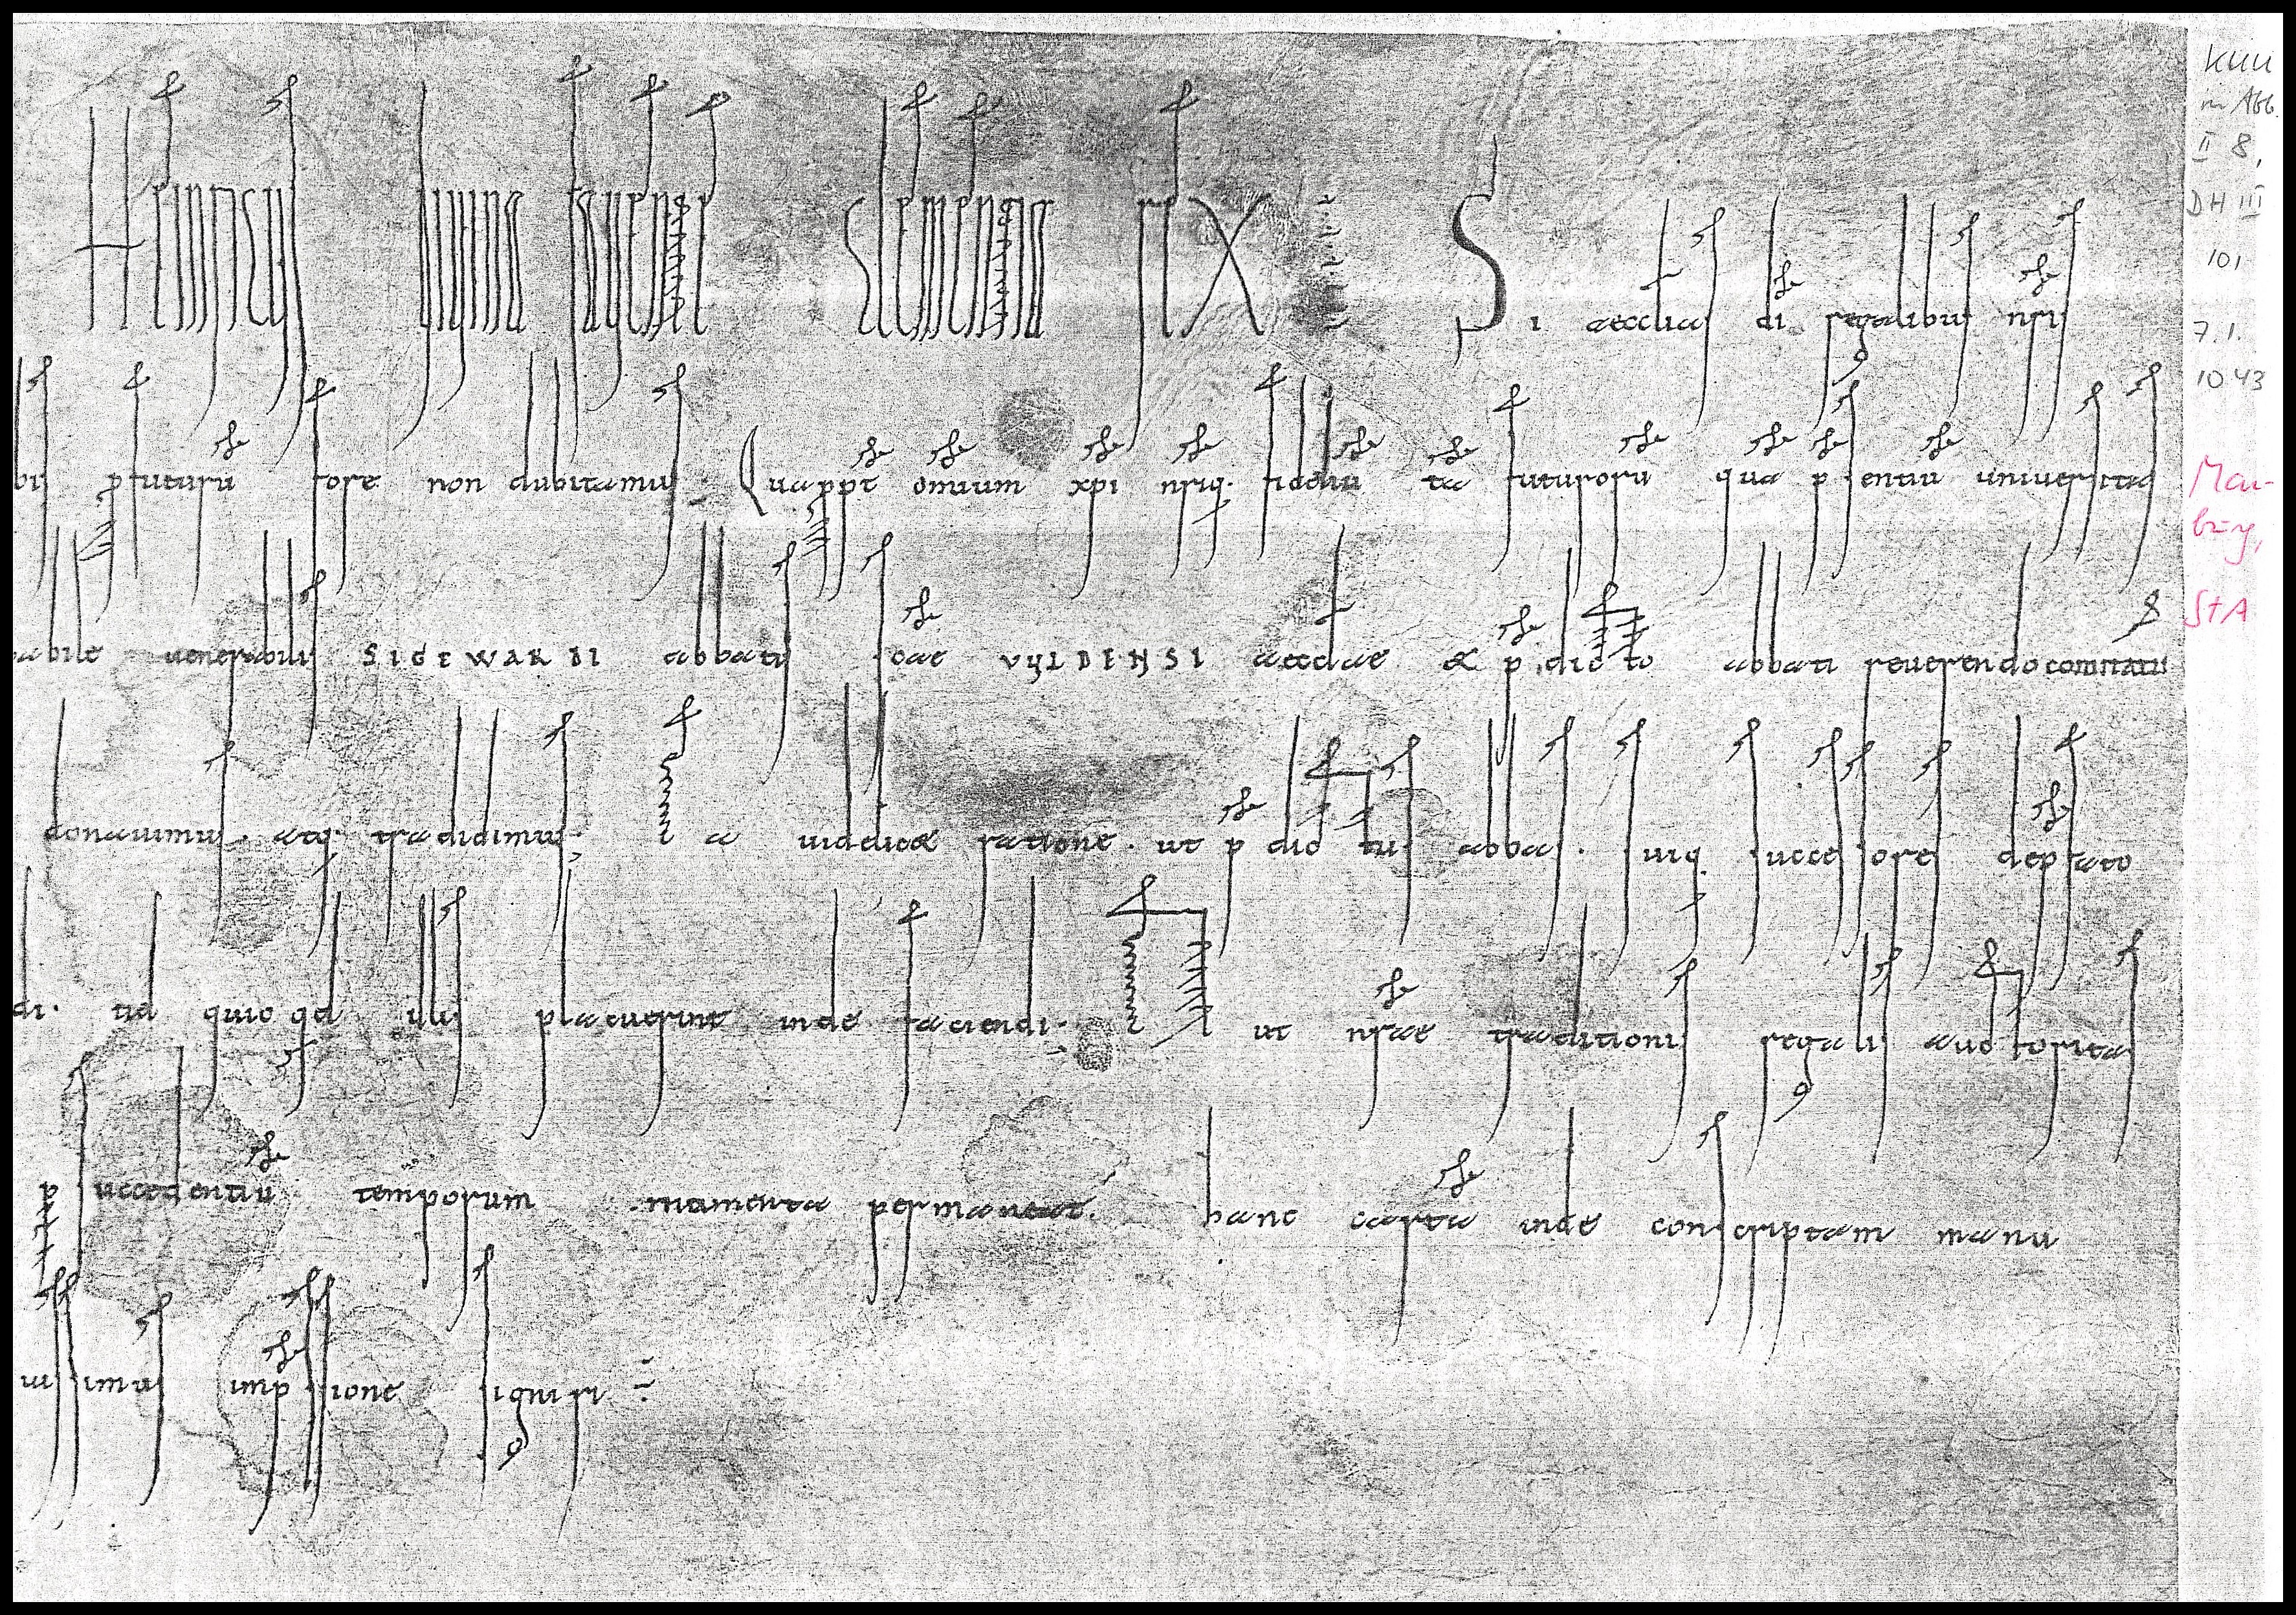 HEINRICUS DIVINA FAVENTE CLEMENTIA REX Si aecclias di regalibus nris
bis pfuturu fore non dubitamus. Quappt omium xpi nriq. fideliu ta futuroru qua psentiu universitas
venerabilis SIGEWARDI abbatis VVLDENSI aecclae & pdicto abbati reverendo comitatu
donavimus. atq. tradidimus. Ea videlicet ratione. ut pdictus abbas. suiq. successores de pfato
di. id quicqd illis placuerint inde faciendi. Et ut nrae traditionis regalis auctoritas
p succedentiu temporum momenta permaneat. hanc carta inde conscriptam manu
iussimus impssione signiri
KUU
in Abb.
II 8,
DH III
101
7.1.
1043
Mar-
burg,
StA